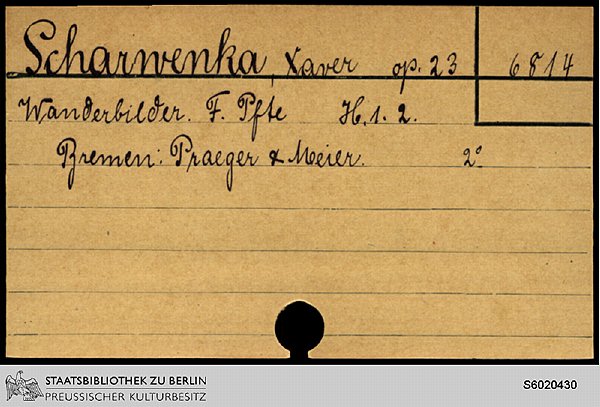 Scharwenka, Xaver op. 23 6814
Wanderbilder. F. Pfte H. 1. 2.
Bremen: Praeger & Meier. 2°
STAATSBIBLIOTHEK ZU BERLIN
PREUSSISCHER KULTURBESITZ
S6020430